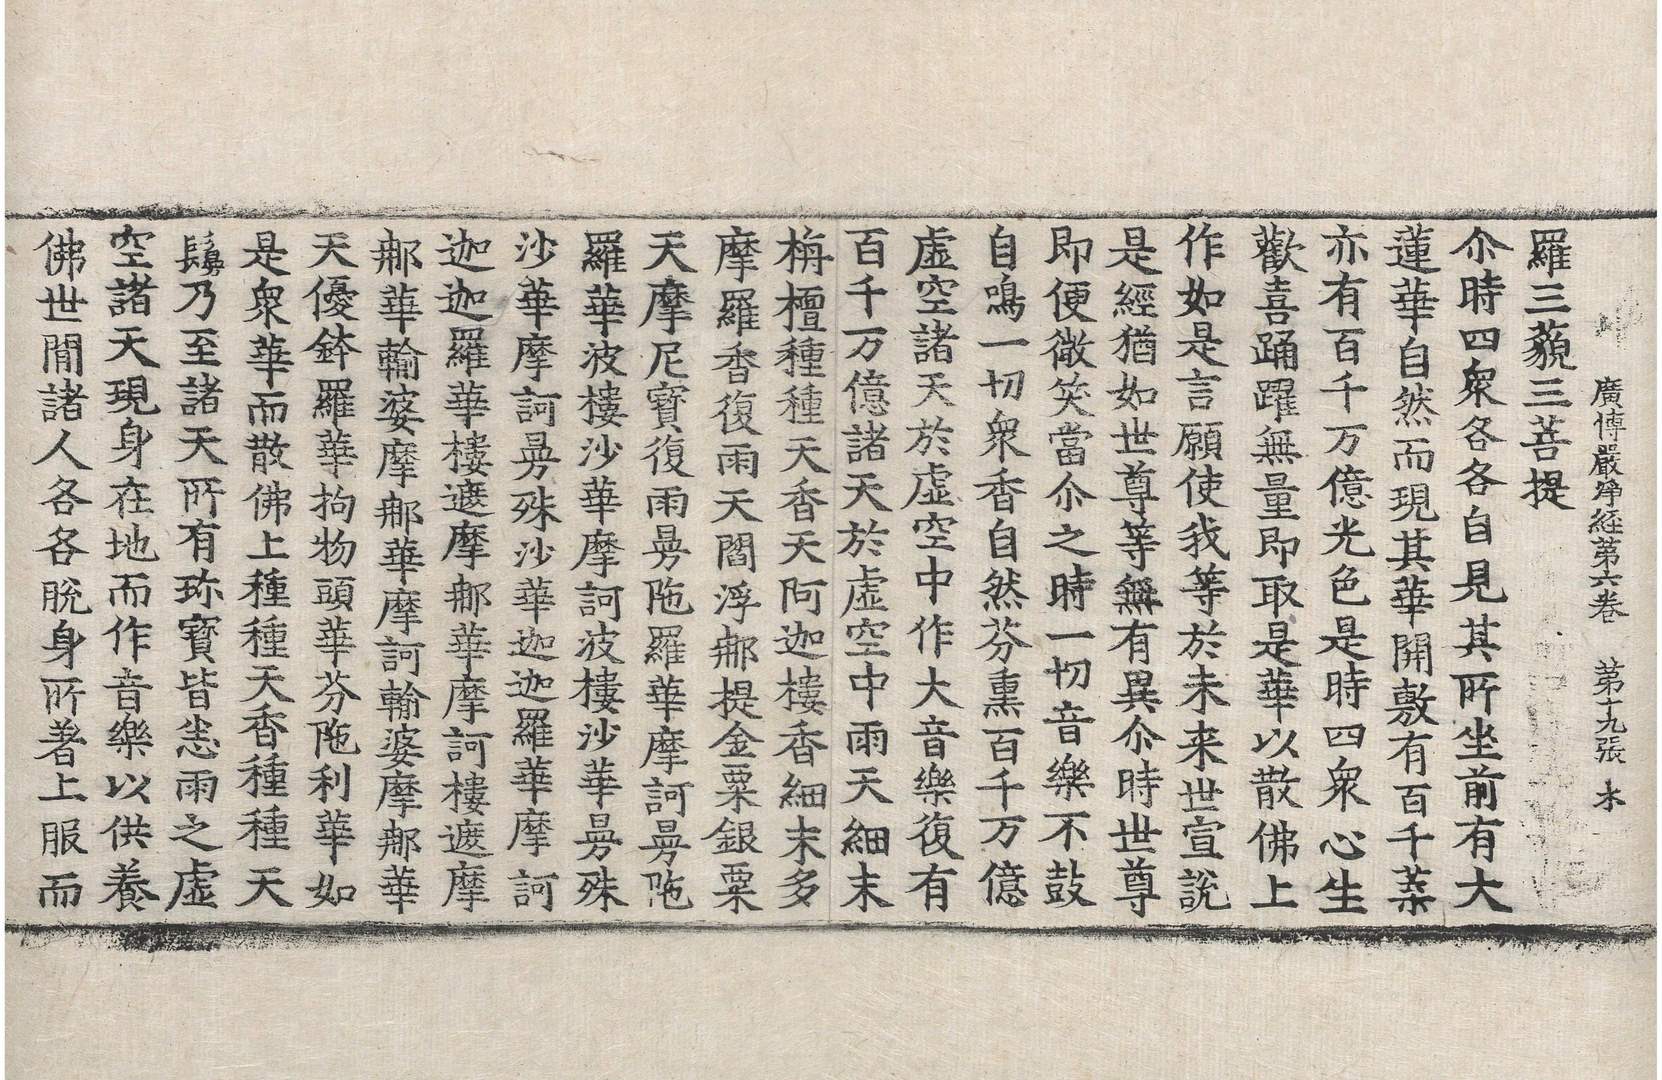 廣博嚴淨經第六卷　第十九張　木
羅三藐三菩提
尒時四衆各各自見其所坐前有大
蓮華自然而現其華開敷有百千葉
亦有百千万億光色是時四衆心生
歡喜踊躍無量即取是華以散佛上
作如是言願使我等於未来世宣說
是經猶如世尊等無有異尒時世尊
即便微笑當尒之時一切音樂不鼓
自鳴一切衆香自然芬熏百千万億
虛空諸天於虛空中作大音樂復有
百千万億諸天於虛空中雨天細末
栴檀種種天香天阿迦樓香細末多
摩羅香復雨天閻浮那提金粟銀粟
天摩尼寳復雨曼陁羅華摩訶曼陁
羅華波樓沙華摩訶波樓沙華曼殊
沙華摩訶曼殊沙華迦迦羅華摩訶
迦迦羅華樓遮摩那華摩訶樓遮摩
那華輸婆摩那華摩訶輸婆摩那華
天優鉢羅華拘物頭華芬陁利華如
是衆華而散佛上種種天香種種天
鬘乃至諸天所有珎寳皆悉雨之虛
空諸天現身在地而作音樂以供養
佛世閒諸人各各脫身所著上服而